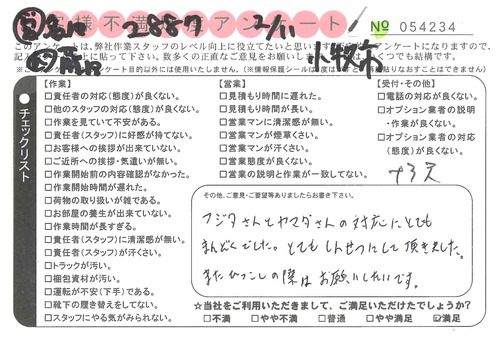 客様不満 アンケート № 054234
2887 2/11
小牧市
このアンケートは、弊社作業スタッフのレベル向上に役立てたいと思いま
ケートになりますので、
記入 上に貼って下さい。数多くの正直なご意見をお願いしま
くつでも結構です。
【作業】
□責任者の対応(態度)が良くない。
□他のスタッフの対応(態度)が良くない。
□作業を見ていて不安がある。
□責任者(スタッフ)に好感が持てない。
□お客様への挨拶が出来ていない。
□ご近所への挨拶・気遣いが無い。
□作業開始前の内容確認がなかった。
□作業開始時間が遅れた。
□荷物の取り扱いが雑である。
□お部屋の養生が出来ていない。
□作業時間が長すぎる。
□責任者(スタッフ)に清潔感が無い。
□責任者(スタッフ)が汗くさい。
□トラックが汚い。
□梱包資材が汚い。
□運転が不安(下手)である。
□靴下の履き替えをしてない。
□スタッフにやる気がみられない。
チェックリスト
【営業】
□見積もり時間に遅れた。
□見積もり時間が長い。
□営業マンに清潔感が無い。
□営業マンが煙草くさい。
□営業マンが汗くさい。
□営業態度が良くない。
□営業の説明と作業が一致してない。
【受付・その他】
□電話の対応が良くない。
□オプション業者の説明
・作業が良くない。
□オプション業者の対応
(態度)が良くない。
その他、ご意見・ご要望等ありましたらお書き下さい。
フジタさんとヤマダさんの対応にとても
まんぞくでした。とてもしんせつにして頂きました。
またひっこしの際はお願いしたいです。
☆当社をご利用いただきまして、ご満足いただけたでしょうか?
□不満 □やや不満 □普通 □やや満足 ☑満足